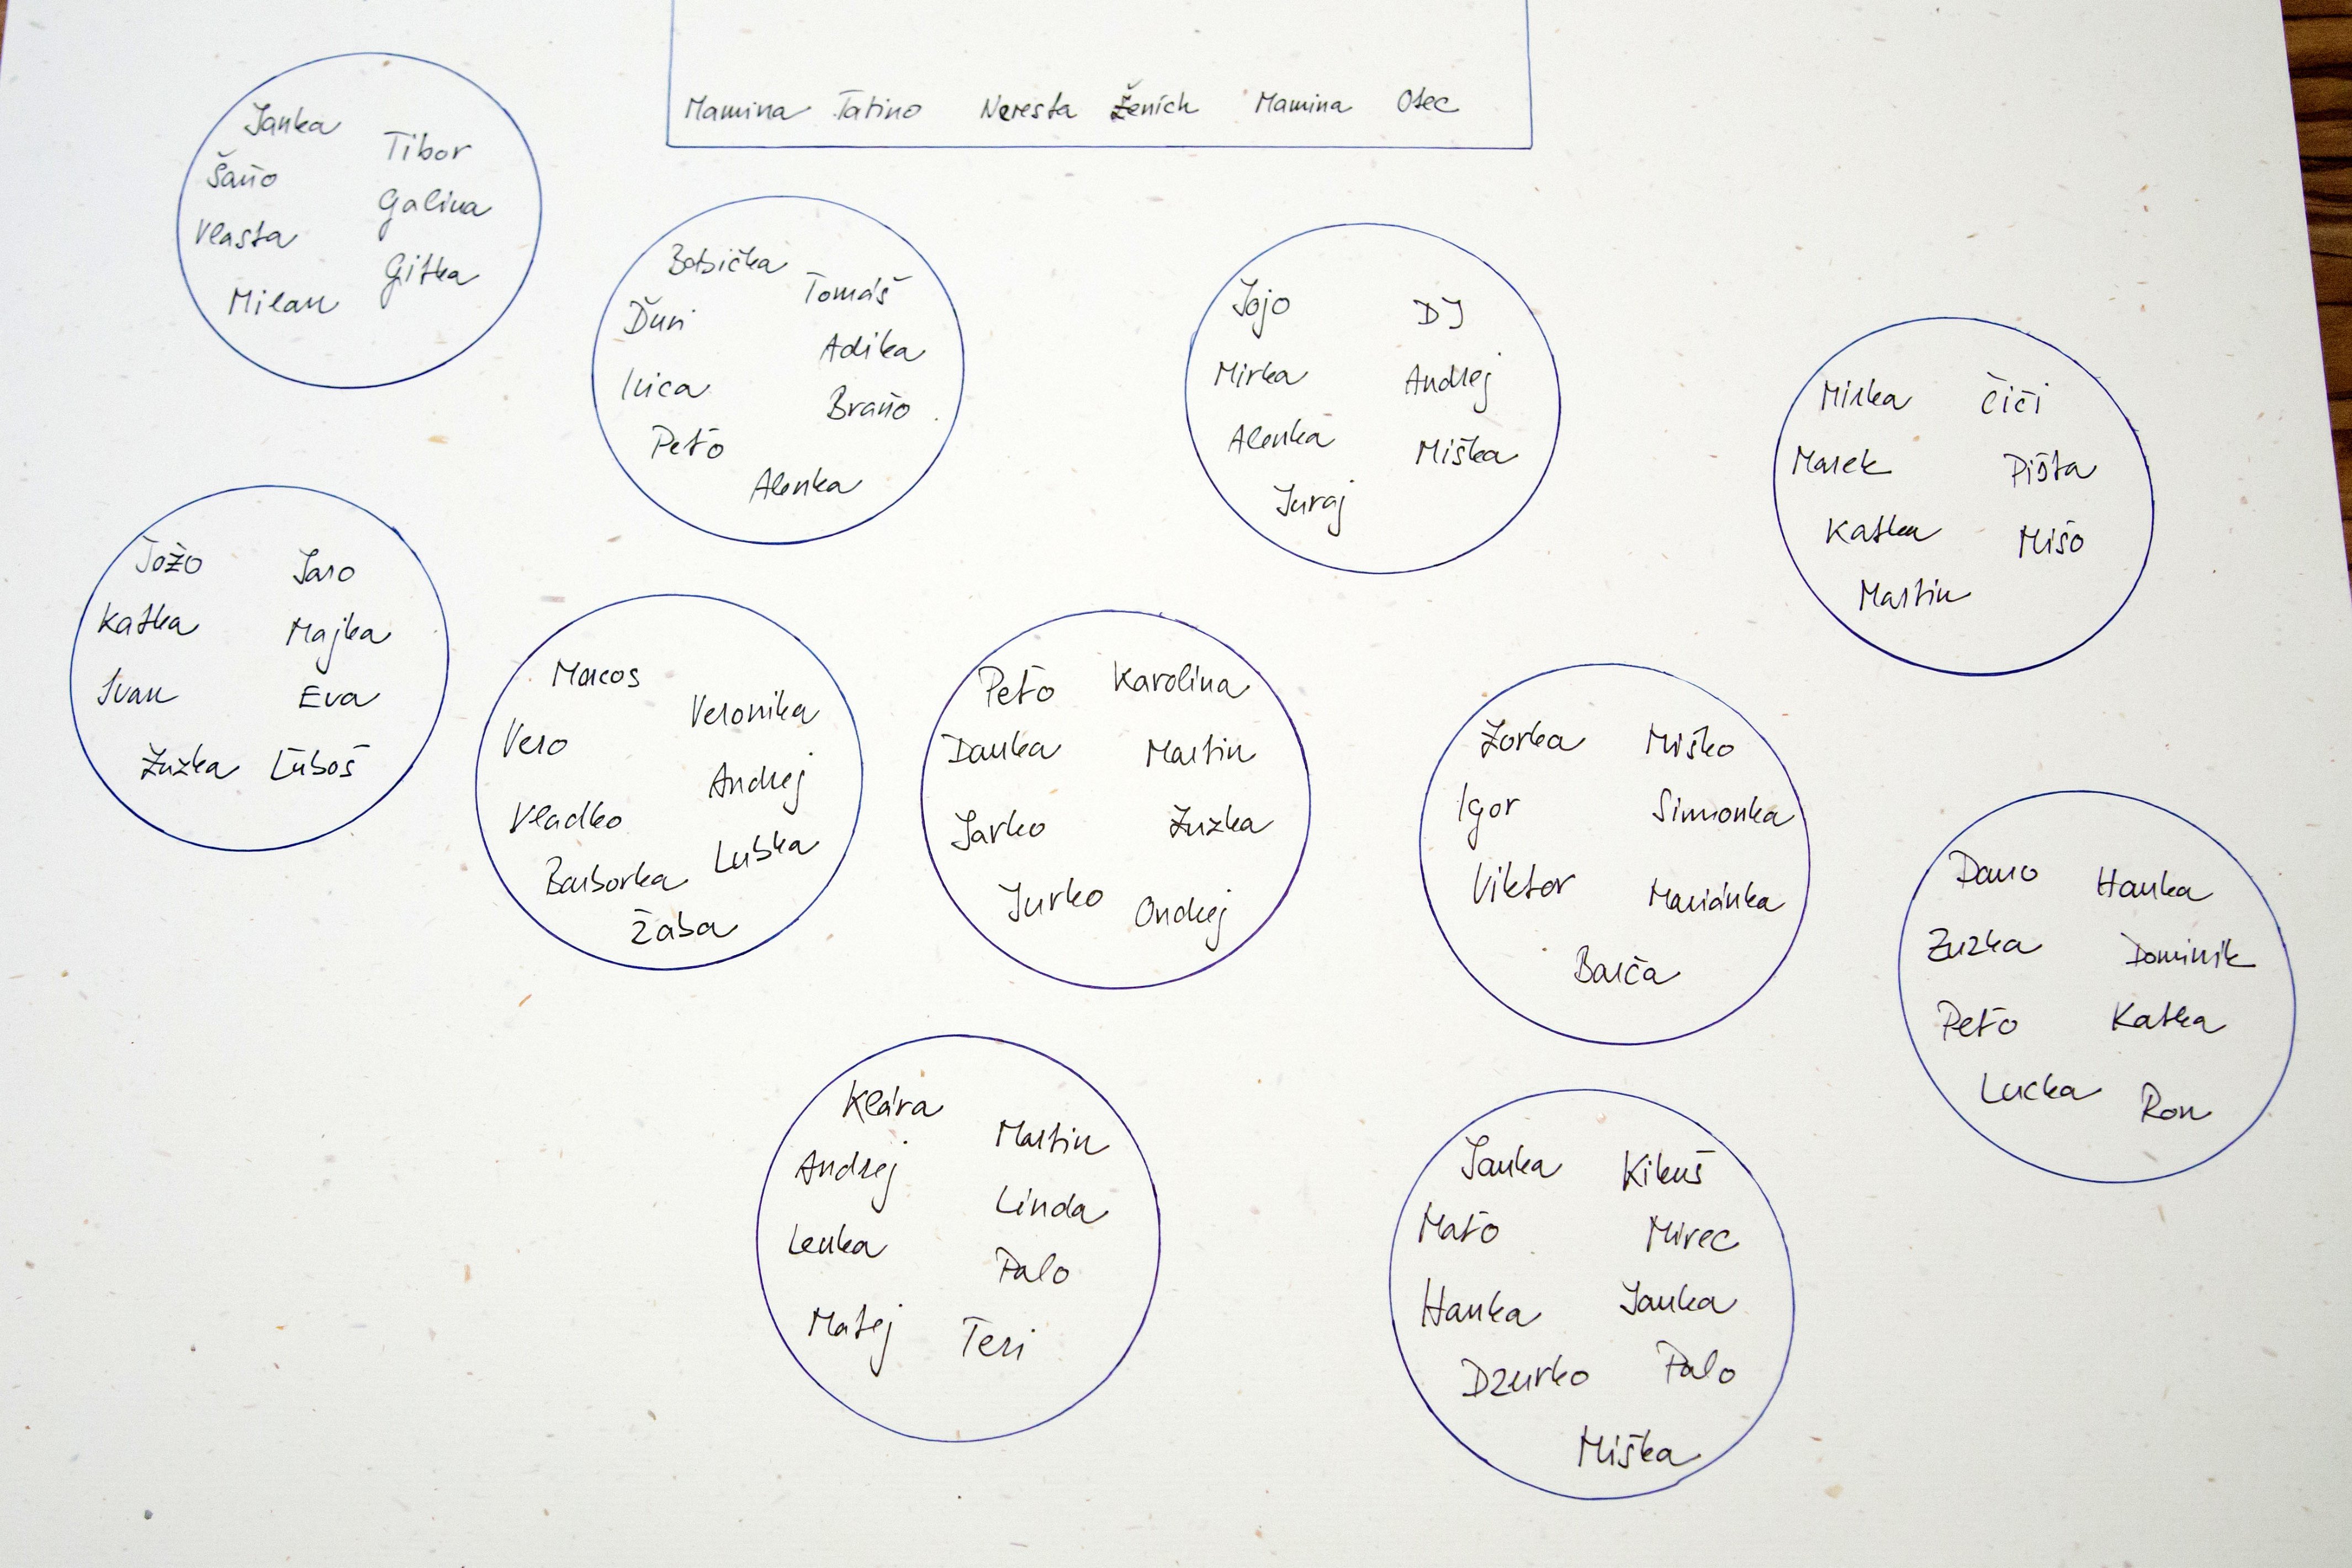 Mamina Tatino Nevesta Ženích Mamina Otec
Janka
Tibor
Šaňo
Galina
Vlasta
Gitka
Milan
Babička
Tomáš
Ďuri
Adika
Ivica
Braňo
Peťo
Alenka
Jojo DJ
Mirka Andrej
Alenka Miška
Juraj
Mirka Čiči
Marek Pišta
Katka Mišo
Martin
Jožo Jaro
Katka Majka
Ivan Eva
Zuzka Ľuboš
Marcos
Veronika
Vero
Andrej
Vladko
Lubka
Barborka
Žaba
Peťo Karolina
Danka Martin
Jarko Zuzka
Jurko Ondrej
Zorka Miško
Igor Simonka
Viktor Mariánka
Barča
Dano Hanka
Zuzka Dominik
Peťo Katka
Lucka Ron
Klára
Martin
Andrej
Linda
Lenka
Palo
Matej Teri
Janka Kikuš
Maťo Mirec
Hanka Janka
Dzurko Palo
Miška